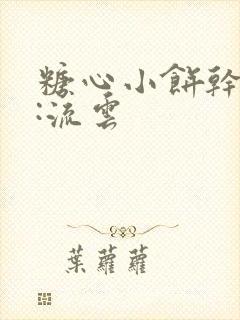 糖心小餅幹
:流雲
葉蘿蘿